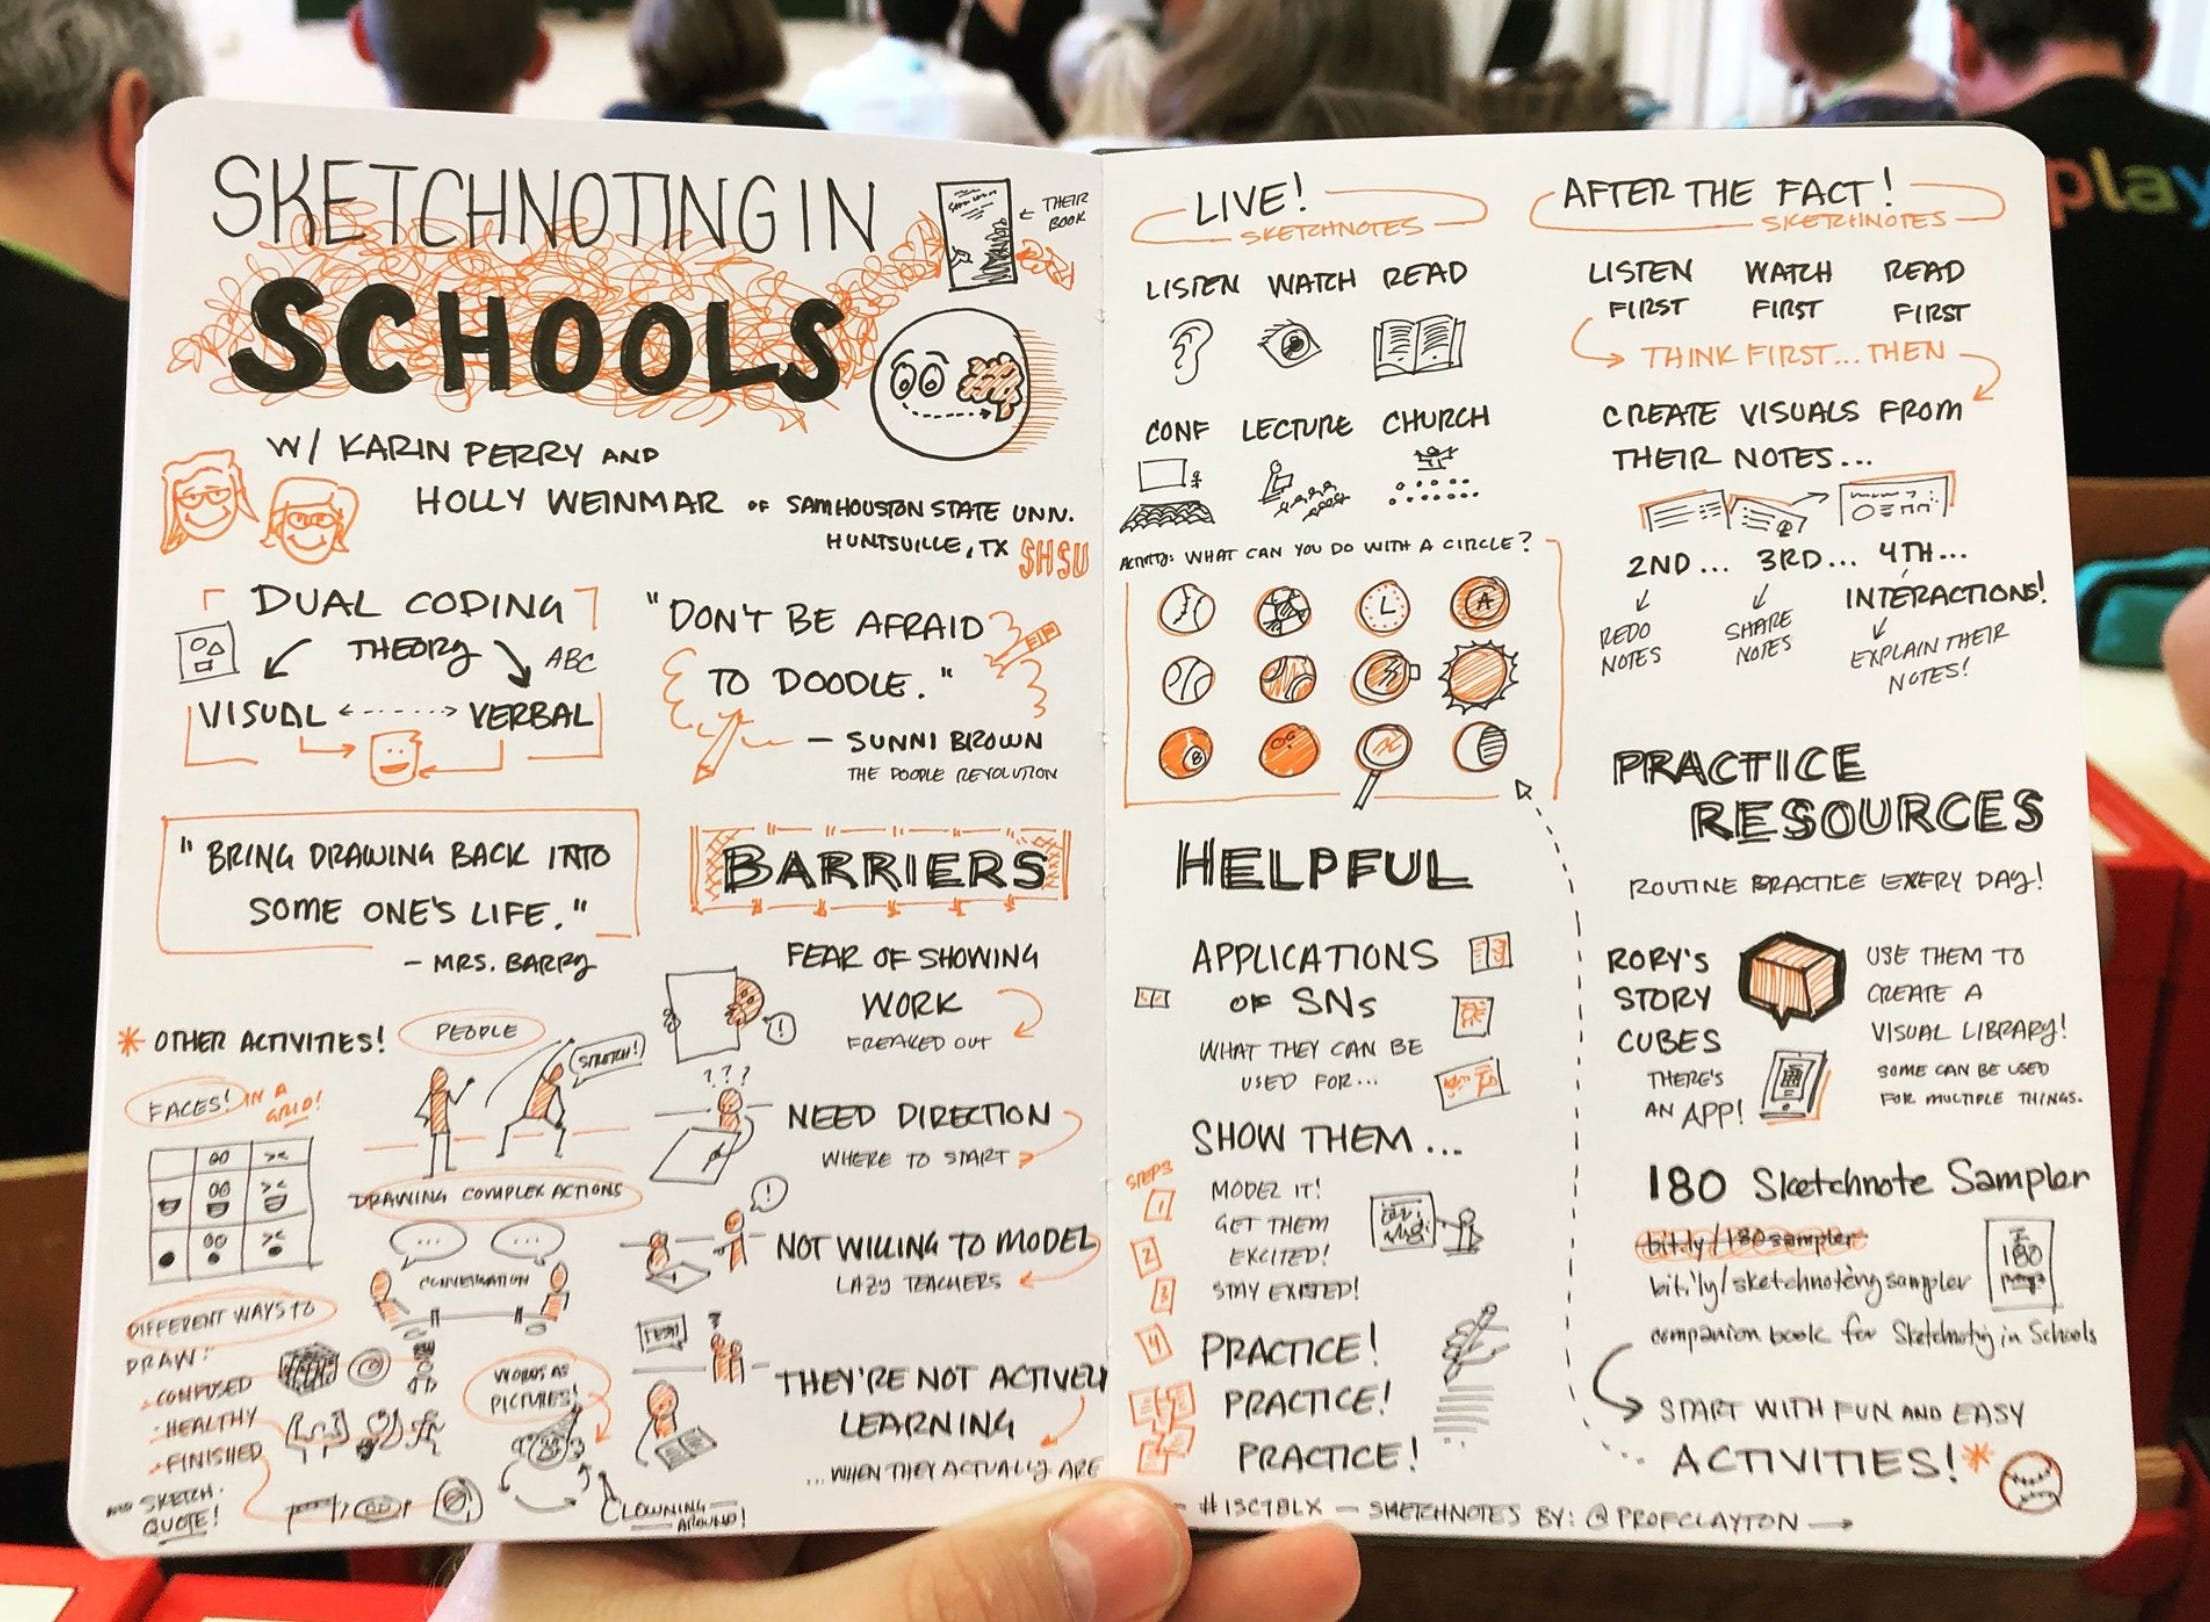 SKETCHNOTING IN
SCHOOLS
← THEIR
BOOK
W/ KARIN PERRY AND
HOLLY WEINMAR OF SAM HOUSTON STATE UNN.
HUNTSVILLE, TX SHSU
DUAL CODING
THEORY
ABC
VISUAL <-----> VERBAL
"DON'T BE AFRAID
TO DOODLE."
— SUNNI BROWN
THE DOODLE REVOLUTION
"BRING DRAWING BACK INTO
SOME ONE'S LIFE."
- MRS. BARRY
BARRIERS
FEAR OF SHOWING
WORK
FREAKED OUT
!
???
NEED DIRECTION
WHERE TO START
!
NOT WILLING TO MODEL
LAZY TEACHERS
?
THEY'RE NOT ACTIVELY
LEARNING
...WHEN THEY ACTUALLY ARE
* OTHER ACTIVITIES!
PEOPLE
STRETCH!
FACES! IN A
GRID!
DRAWING COMPLEX ACTIONS
...
...
CONVERSATION
DIFFERENT WAYS TO
DRAW:
- CONFUSED
- HEALTHY
- FINISHED
SKETCH.
QUOTE!
WORDS AS
PICTURES!
CLOWNING
AROUND!
LIVE!
SKETCHNOTES
LISTEN WATCH READ
CONF LECTURE CHURCH
ACTIVITY: WHAT CAN YOU DO WITH A CIRCLE?
A
8
HELPFUL
APPLICATIONS
OF SNs
WHAT THEY CAN BE
USED FOR...
SHOW THEM...
STEPS
1 MODEL IT!
GET THEM
2 EXCITED!
3 STAY EXITED!
4 PRACTICE!
PRACTICE!
PRACTICE!
AFTER THE FACT!
SKETCHNOTES
LISTEN WATCH READ
FIRST FIRST FIRST
THINK FIRST... THEN
CREATE VISUALS FROM
THEIR NOTES...
2ND... 3RD... 4TH...
REDO
NOTES
SHARE
NOTES
INTERACTIONS!
EXPLAIN THEIR
NOTES!
PRACTICE
RESOURCES
ROUTINE PRACTICE EVERY DAY!
RORY'S
STORY
CUBES
THERE'S
AN APP!
USE THEM TO
CREATE A
VISUAL LIBRARY!
SOME CAN BE USED
FOR MULTIPLE THINGS.
180 Sketchnote Sampler
bit.ly/180sampler
bit.'ly/sketchnotingsampler
180
companion book for Sketchnoting in Schools
START WITH FUN AND EASY
ACTIVITIES! *
- #ISC18LX — SKETCHNOTES BY: @PROFCLAYTON →
play